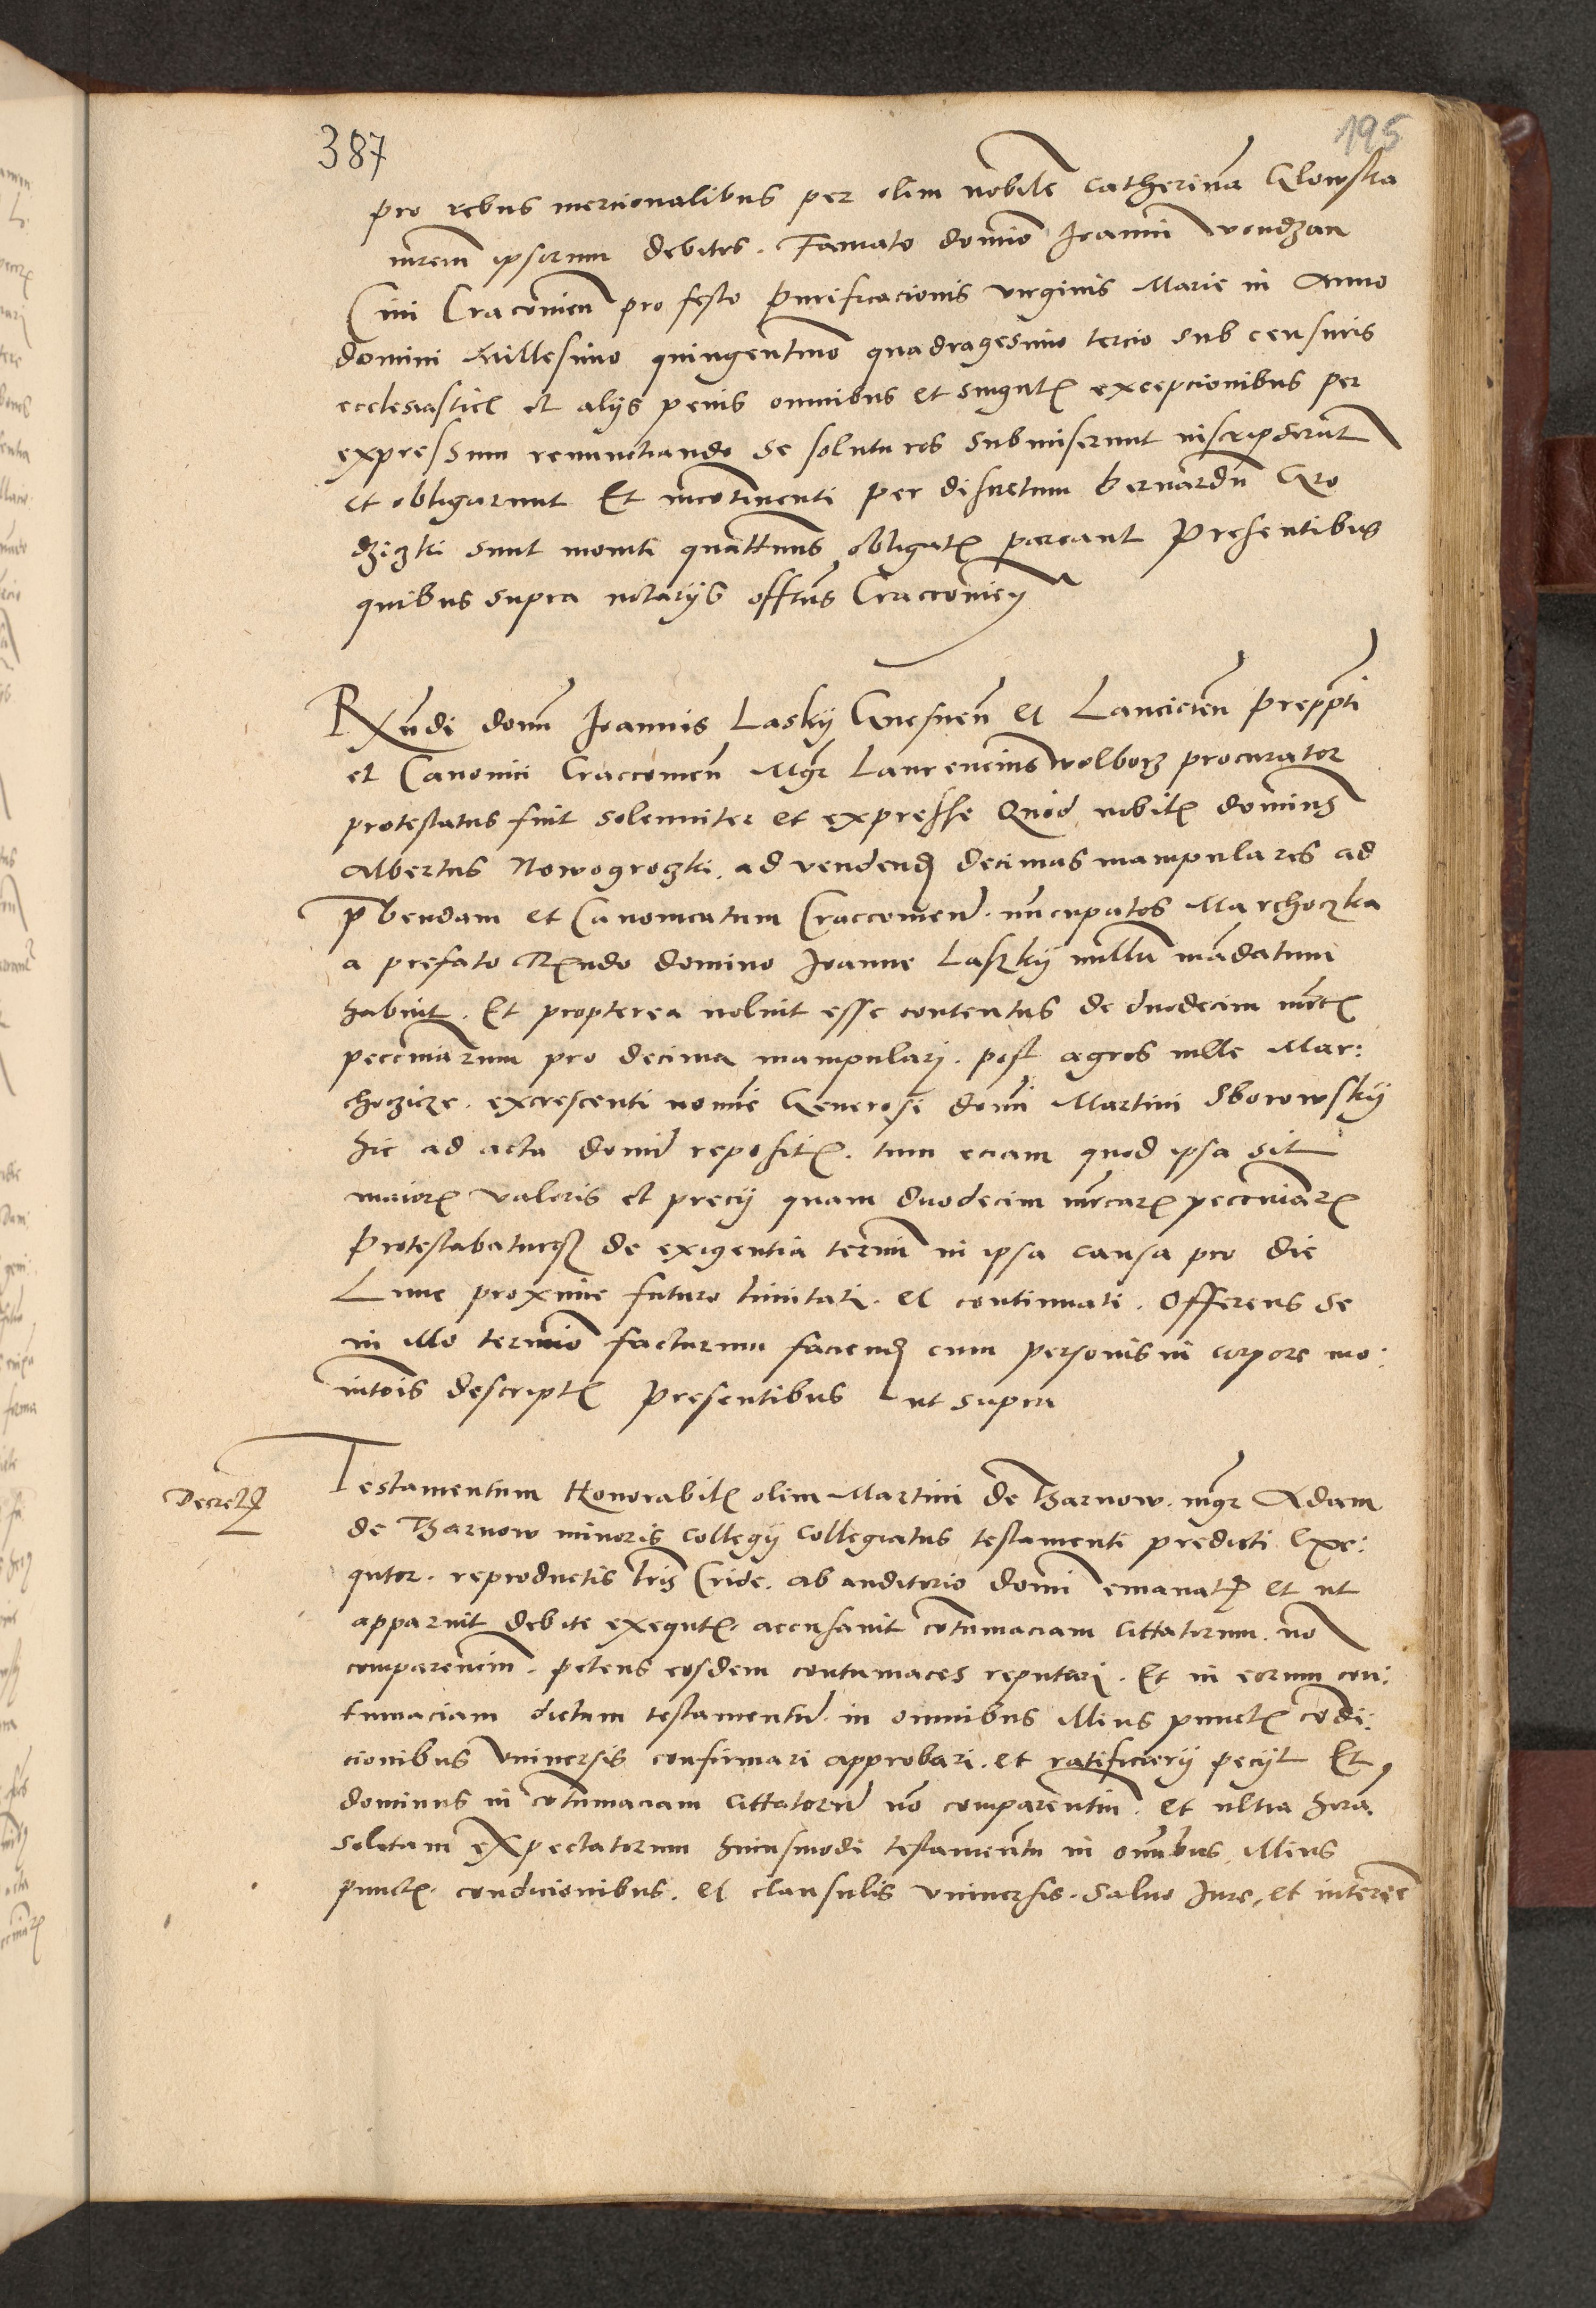 387
195
pro rebus mercionalibus per olim nobilē Catherinā Glowska
mrem ipsorum debitos. Famato domīo Joanni Wondzan
Civi Cracovieñ pro festo Purificacionis virginis Marie in Anno
domini Millesimo quingentmo quadragesimo tercio sub censuris
ecclesiasticꝭ et alÿs penis omnibus et singulꝭ excepcionibus per
expressum renunctiando se soluturos submiserunt inscripserūt
et obligarunt Et incōtinenti per discretum Bernardū Gro
dziczki sunt moniti quāttenus obligatꝭ pareant Presentibus
quibus supra notarÿs offtūs Cracovieñ
Rxndi domī Joannis Laskÿ Gnesneñ et Lancicieñ Preppti
et Canonici Cracovieñ Mgr Laurencius Wolborz procurator
protestatus fuit solenniter et expresse Quod nobilꝭ dominus
Albertus Nowogroczki. ad vendendꝭ decimas manipulares ad
p̄bendam et Canonicatum Cracovieñ. nūcupatos Marchoczka
a prefato Rxndo domino Joanne Laszkÿ nullū mādatum
habuit. Et propterea noluit esse contentus de duodecim mrcꝭ
pecuniarum pro decima manipulari. post agros ville Mar:
choczicze. excrescenti nomīe Generosi domī Martini Sborowskÿ
hic ad acta domī repositꝭ. tum eciam quod ipsa sit
maiorꝭ valoris et precÿ quam duodecim mrcarꝭ pecuniarꝭ
Protestabaturqꝫ de exigentia termī in ipsa causa pro die
Lune proxime futuro limitati. et continuati. Offerens se
in illo termīo facturum faciendꝭ cum personis in corpore mo:
nitōis descriptꝭ Presentibus ut supra
Decretꝭ
Testamentum Honorabilꝭ olim Martini de Tharnow. mgr Adam
de Tharnow minoris collegÿ Collegiatus testamenti predicti Exe:
qutor. reproductis lris Cride. ab auditorio domī emanatꝭ et ut
apparuit debite exequtꝭ. accusavit cōtumaciam Cittatorum. nō
comparēncium. petens eosdem contumaces reputari. Et in eorum con:
tumaciam dictum testamentū. in omnibus illius punctꝭ cōdi:
cionibus universis confirmari approbari. et ratificarÿ peciÿt Et
dominus in cōtumaciam Cittatorū nō comparentiū. et ultra horā.
solitam expectatorum huiusmodi testamentū in omībus. illius
punctꝭ. condicionibus. et clausulis universis. Salvo Iure, et interēe